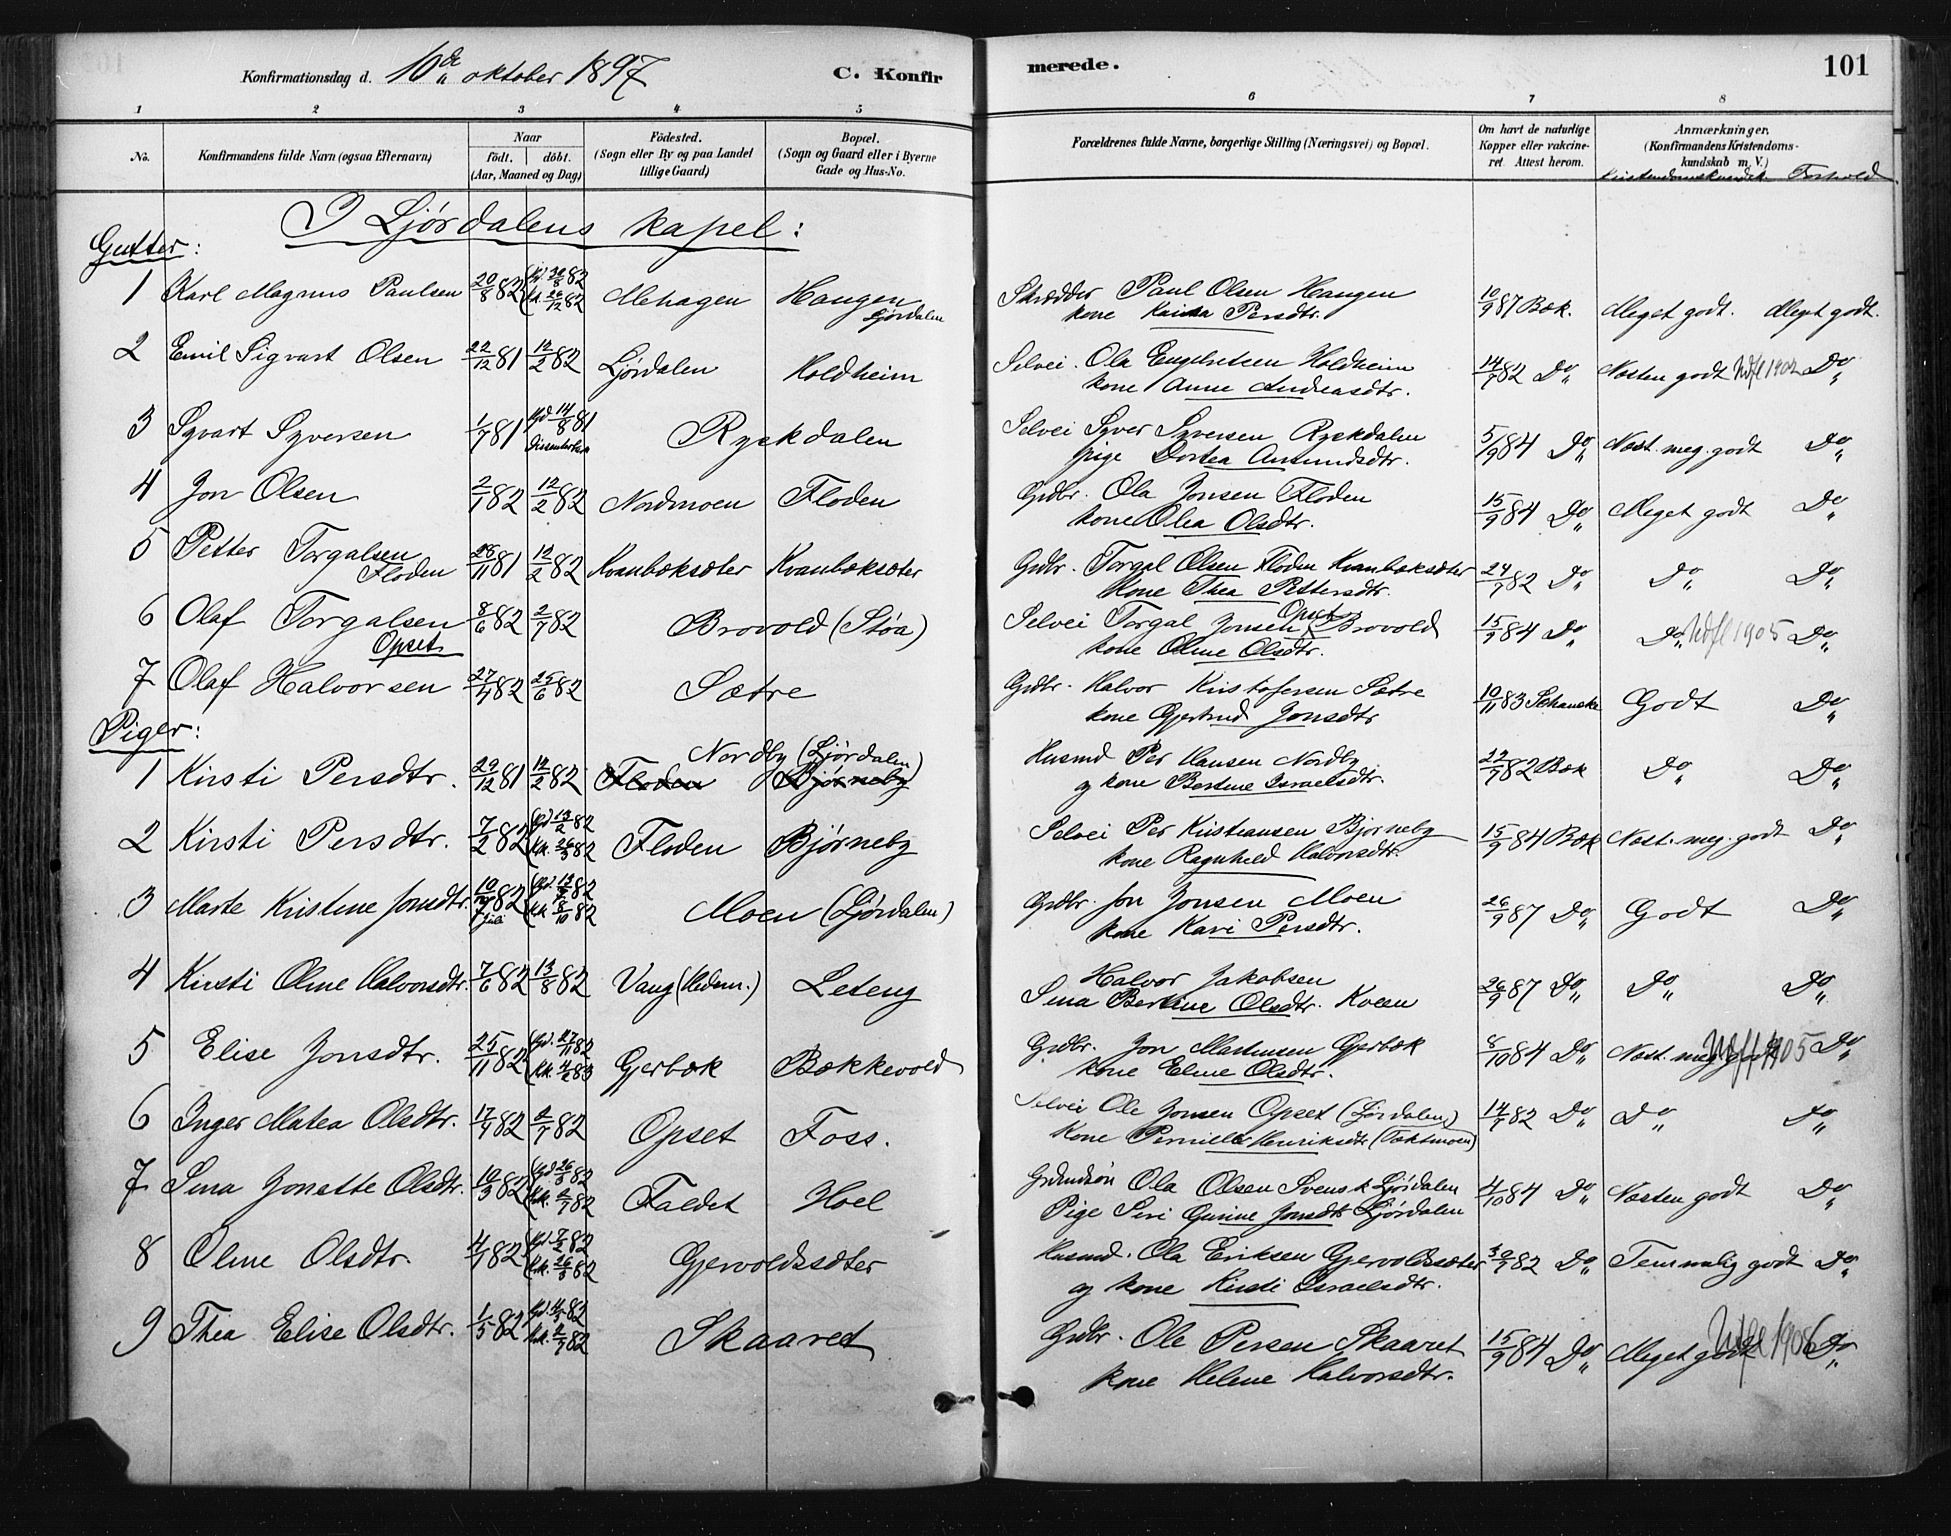 Konfirmationsdag d. 10de oktober 1897 C. Konfir
merede. 101
1 2 3 4 5 6 7 8
No. Konfirmandens fulde Navn (ogsaa Efternavn) Naar födt. döbt. (Aar, Maaned og Dag) Födested. (Sogn eller By og paa Landet tillige Gaard) Bopæl. (Sogn og Gaard eller i Byerne Gade og Hus-No.
Forældrenes fulde Navne, borgerlige Stilling (Næringsvei) og Bopæl. Om havt de naturlige Kopper eller vakcineret. Attest herom. Anmærkninger, (Konfirmandens Kristendomskundskab m. V.)
Kristendomskundsk. Forhold
I Ljørdalens kapel:
Gutter:
1 Karl Magnus Paulsen 20/8 82 Mehagen Haugen Ljørdalen Skrædder Paul Olsen Haugen 10/9 87 Bæk. Meget godt. Meget godt.
kone Persdtr.
2 Emil Sigvart Olsen 22/12 81 12/2 82 Ljørdalen Holdheim Selvei. Ola Engebretsen Holdheim 14/7 82 Do Næsten godt Udfl 1902 Do
kone Anne Andreasdtr.
3 Syvart Syversen 1/7 81 Gd 14/8 81 Ryskdalen Selvei Syver Syversen Ryskdalen 5/9 84 Do Næst. meg. godt Do
pige Dortea Amundsdtr.
4 Jon Olsen 2/1 82 12/2 82 Nordmoen Floden Grdbr. Ola Jonsen Floden 15/9 84 Do Meget godt Do
kone Olea Olsdtr.
5 Petter Torgalsen Floden 28/11 81 12/2 82 Kvanbæksæter Kvanbæksæter Grdbr. Torgal Olsen Floden Kvanbæksæter 24/7 82 Do Do Do
kone Thea Pettersdtr.
6 Olaf Torgalsen Opset 8/6 82 2/7 82 Brovold (Støa) Selvei Torgal Jonsen Opset Brovold 15/9 84 Do Do Udfl 1905 Do
kone Oline Olsdtr.
7 Olaf Halvorsen 27/4 82 25/6 82 Sætre Grdbr. Halvor Kristofersen Sætre 10/11 83 Schanche Godt Do
kone Gjertrud Jonsdtr
Piger:
1 Kirsti Persdtr. 29/12 81 12/2 82 Floden Bjørneby Nordby (Ljørdalen) Husmd Per Hansen Nordby 22/7 82 Bæk Do Do
og kone Bertine Israelsdtr.
2 Kirsti Persdtr. 7/2 82 Gd 13/2 82 Kk. 26/3 82 Floden Bjørneby Selvei Per Kristiansen Bjørneby 15/9 84 Bæk Næst. meg. godt Do
kone Ragnhild Halvorsdtr.
3 Marte Kristine Jonsdtr. 10/7 82 juli Kk. 8/10 82 Moen (Ljørdalen) Grdbr. Jon Jonsen Moen 26/9 87 Do Godt Do
kone Kari Persdtr.
4 Kirsti Oline Halvorsdtr. 7/6 82 13/8 82 Vang (Hedem.) Leteng Halvor Jakobsen 26/9 87 Do Do Do
Sina Bertine Olsdtr. Kveen
5 Elise Jonsdtr. 25/11 82 Gd. 27/11 82 Gjerbæk Bækkevold Grdbr. Jon Martinsen Gjerbæk 8/10 84 Do Næst. meg. godt Udfl 1905 Do
kone Eline Olsdtr.
6 Inger Matea Olsdtr. 17/4 82 2/7 82 Opset Foss. Selvei Ole Jonsen Opset (Ljørdalen) 14/7 82 Do Do Do
kone Pernille Henriksdtr (Taktmoen)
7 Sina Jonette Olsdtr. 10/3 82 Gd 26/3 82 Kk. 2/7 82 Faldet Hoel Grdmdsøn Ola Olsen Svensk Ljørdalen 4/10 84 Do Næsten godt Do
Pige Siri Gurine Jonsdtr Ljørdalen
8 Oline Olsdtr. 4/1 82 Gd. 7/2 82 Kk. 26/3 82 Gjervoldssæter Husmd. Ola Eriksen Gjervoldssæter 30/7 82 Do Temmelig godt Do
og kone Kirsti Israelsdtr.
9 Thea Elise Olsdtr. 1/5 82 Kk. 2/7 82 Skaaret Grdbr. Ole Persen Skaaret 15/9 84 Do Meget godt Udfl 1906 Do
kone Helene Halvorsdtr.